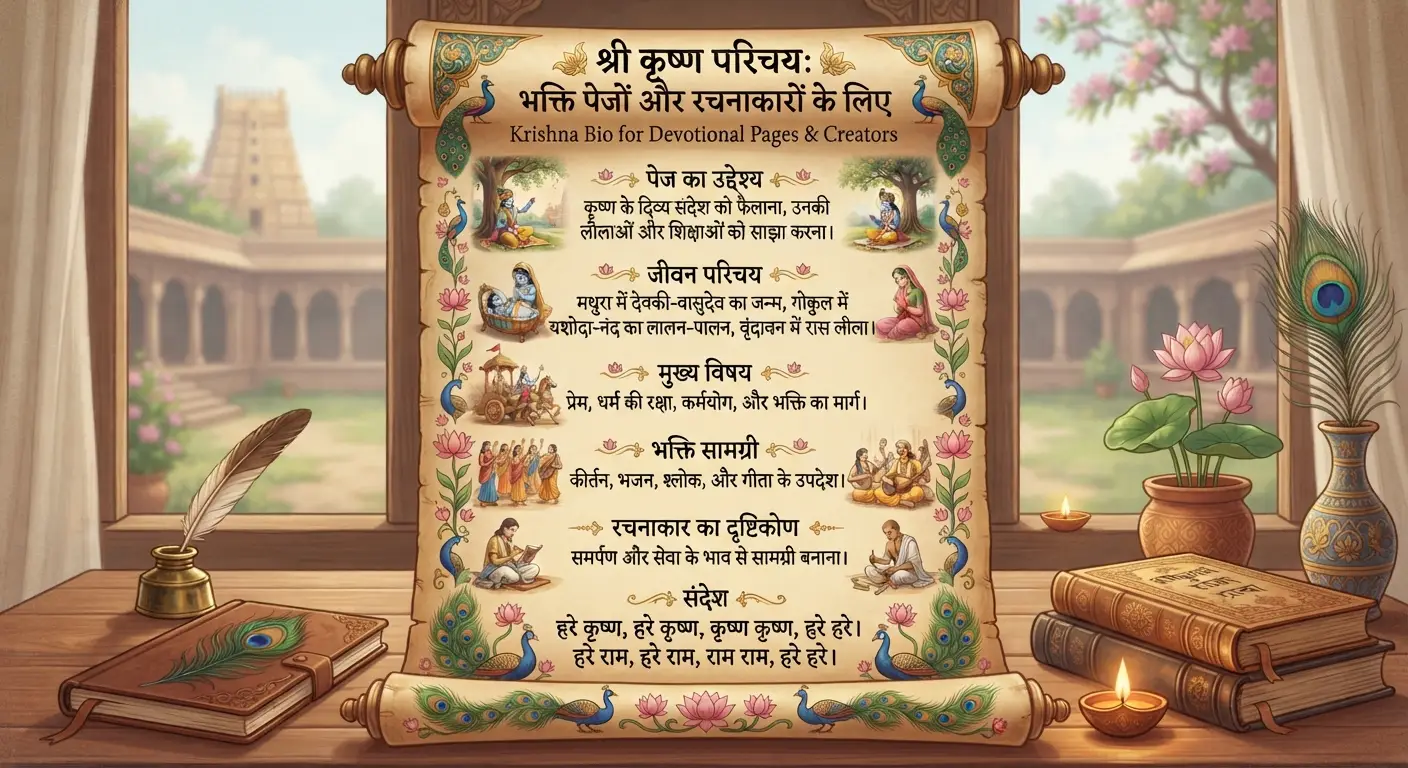 श्री कृष्ण परिचय:
भक्ति पेजों और रचनाकारों के लिए
Krishna Bio for Devotional Pages & Creators
पेज का उद्देश्य
कृष्ण के दिव्य संदेश को फैलाना, उनकी
लीलाओं और शिक्षाओं को साझा करना।
जीवन परिचय
मथुरा में देवकी-वासुदेव का जन्म, गोकुल में
यशोदा-नंद का लालन-पालन, वृंदावन में रास लीला।
मुख्य विषय
प्रेम, धर्म की रक्षा, कर्मयोग, और भक्ति का मार्ग।
भक्ति सामग्री
कीर्तन, भजन, श्लोक, और गीता के उपदेश।
रचनाकार का दृष्टिकोण
समर्पण और सेवा के भाव से सामग्री बनाना।
संदेश
हरे कृष्ण, हरे कृष्ण, कृष्ण कृष्ण, हरे हरे।
हरे राम, हरे राम, राम राम, हरे हरे।